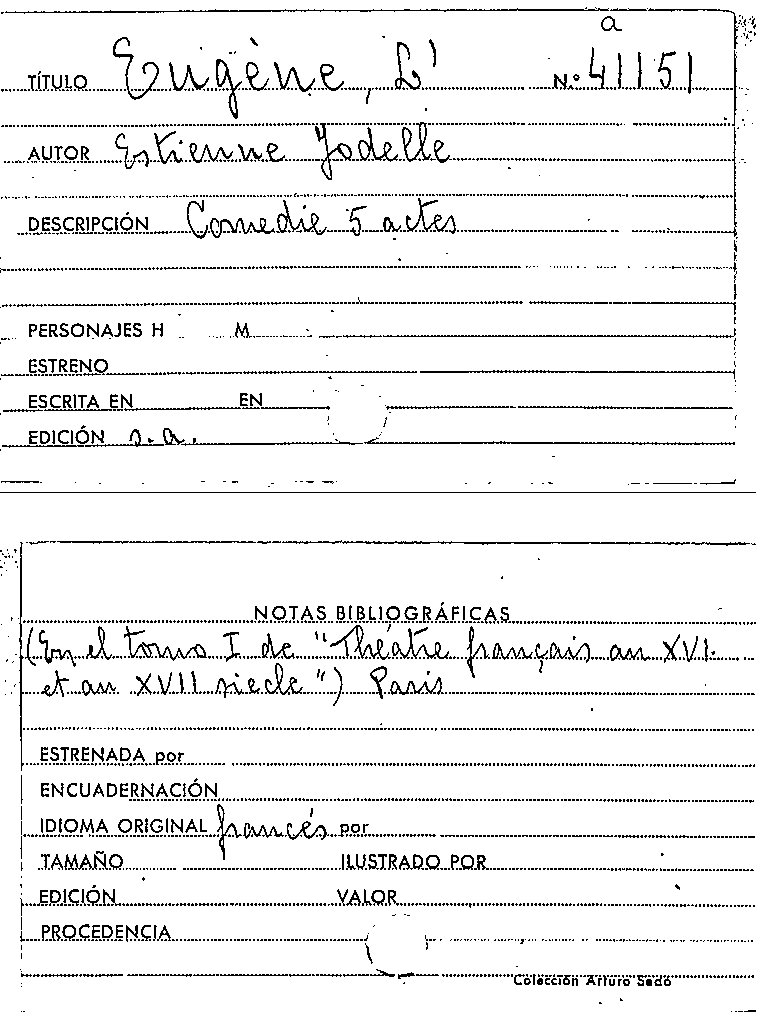 a
TÍTULO Eugène, L' N.º 41151
AUTOR Estienne Jodelle
DESCRIPCIÓN Comedie 5 actes
PERSONAJES H M
ESTRENO
ESCRITA EN EN
EDICIÓN s.a.
NOTAS BIBLIOGRÁFICAS
(En el tomo I de "Théâtre français au XVI
et au XVII siecle") Paris
ESTRENADA por
ENCUADERNACIÓN
IDIOMA ORIGINAL francés por
TAMAÑO ILUSTRADO POR
EDICIÓN VALOR
PROCEDENCIA
Colección Arturo Sedó